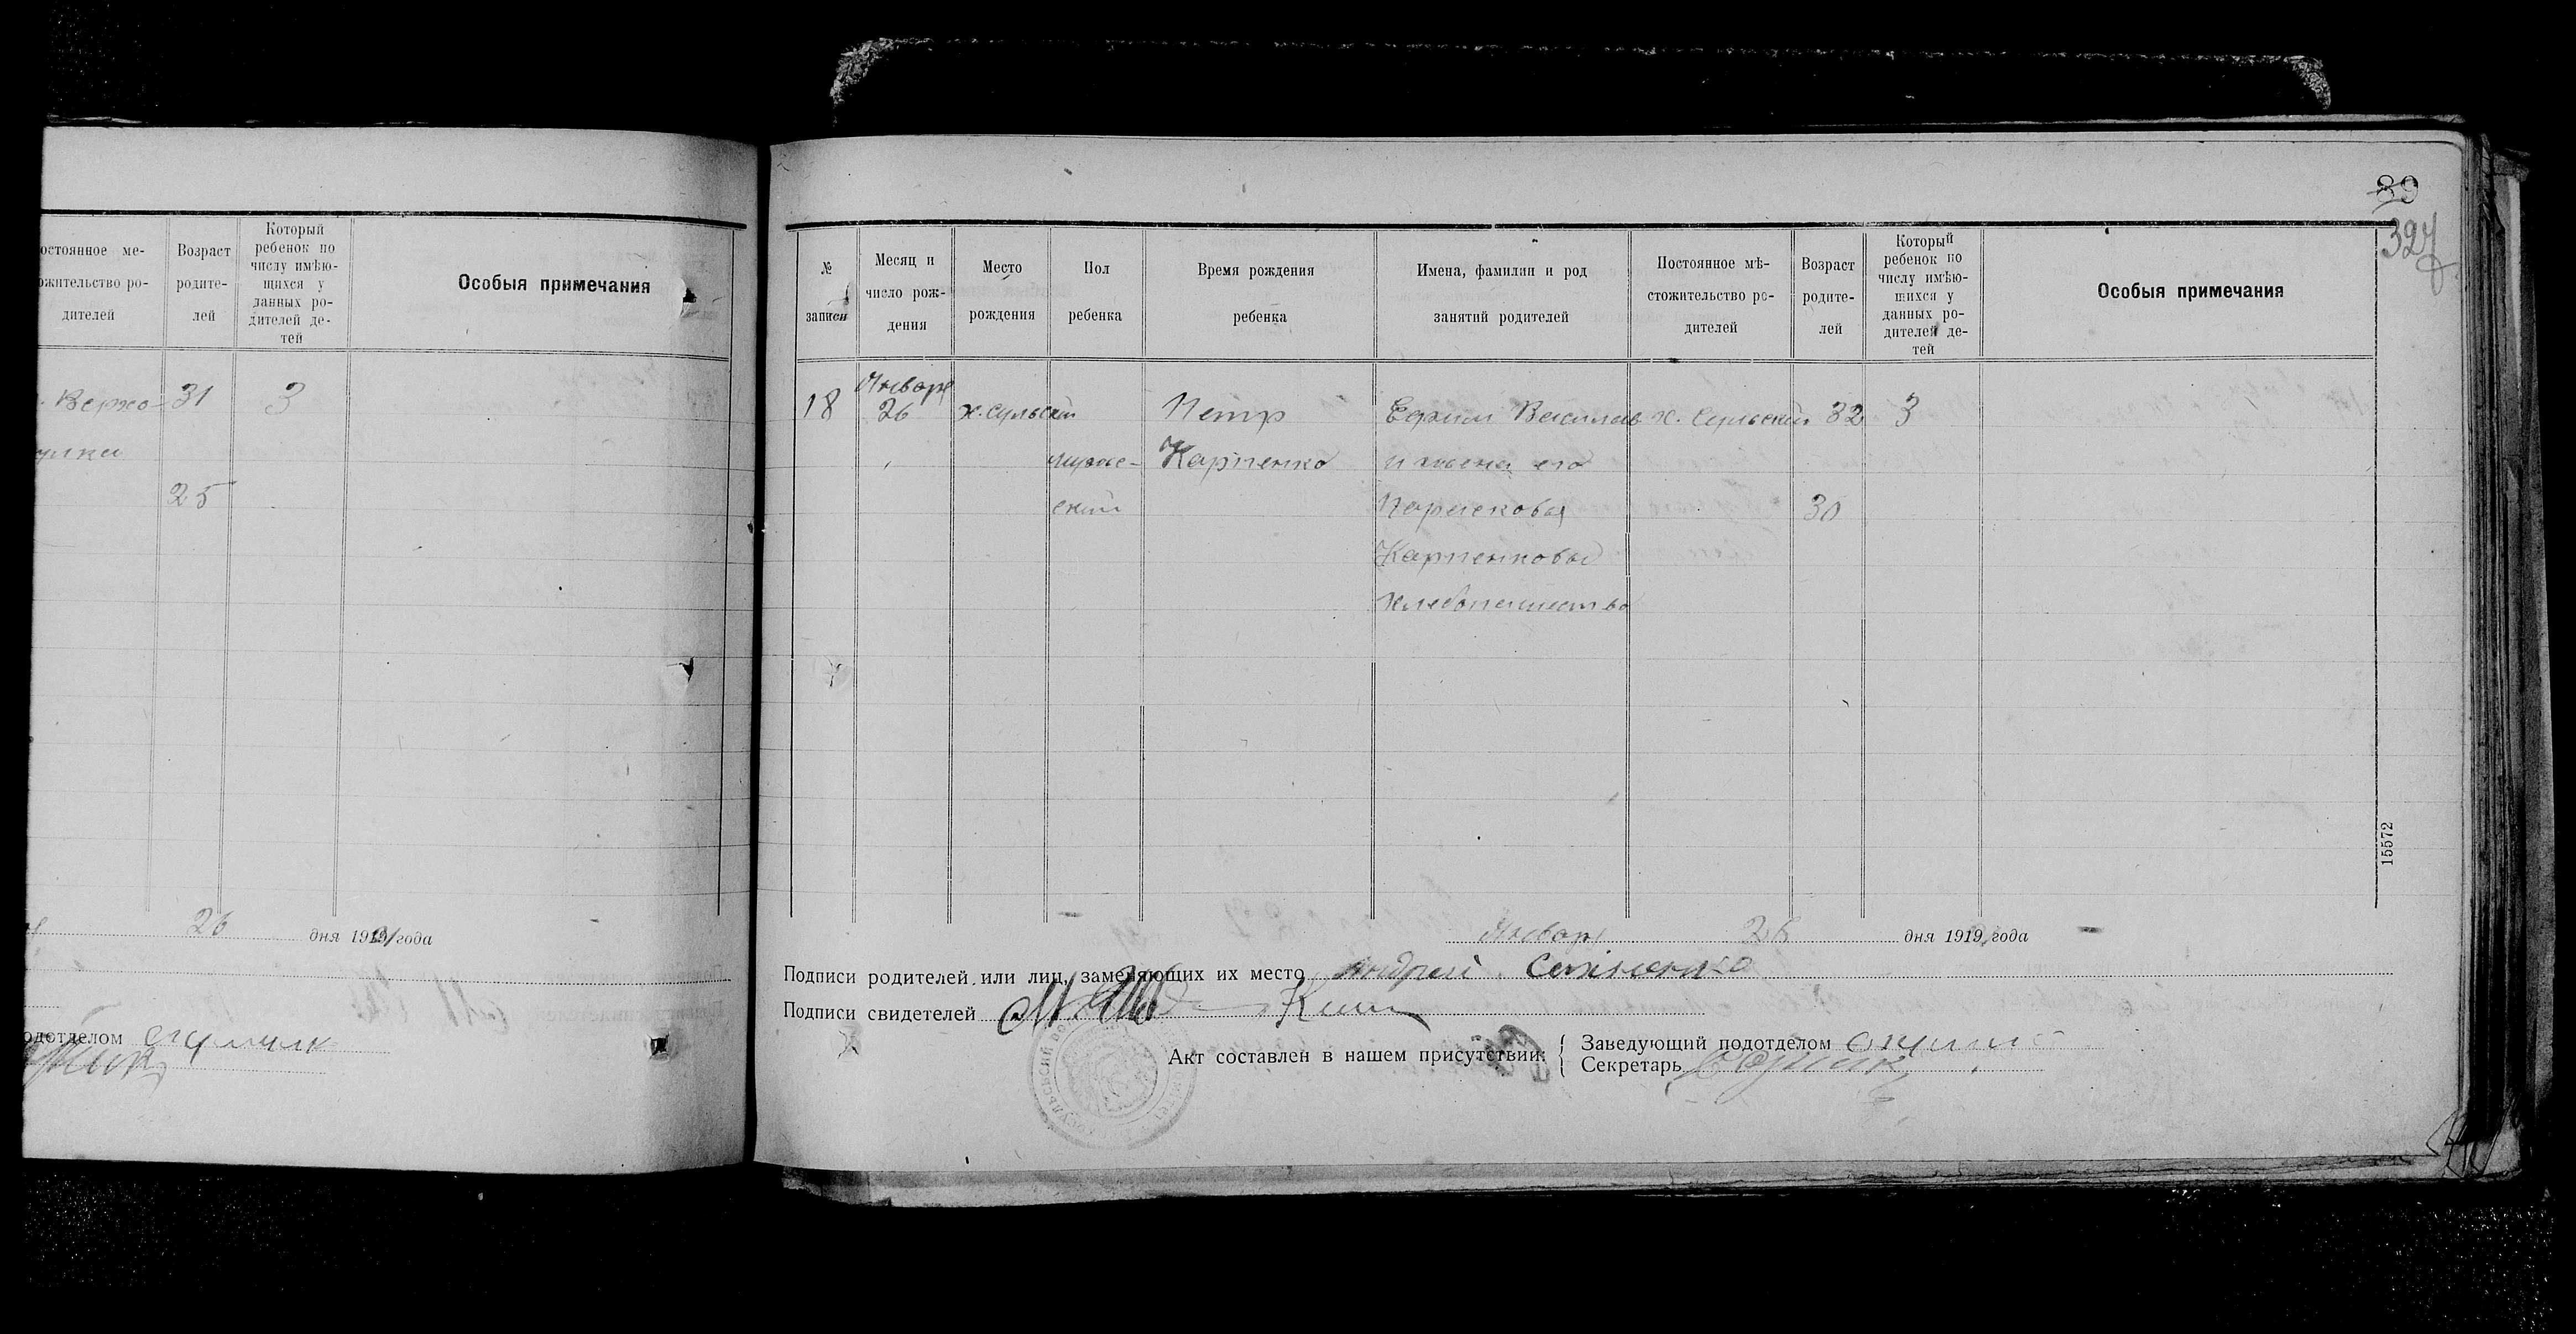 остоянное ме-
ожительство ро-
дителей
Возраст
родите-
лей
Который
ребенок по
числу имѣю-
щихся у
данных ро-
дителей де-
тей
Особыя примечания
. Верхо-
31
3
улка
25
26 дня 1921 года
одотделом
89
327
№
записи
Месяц и
число рож-
дения
Место
рождения
Пол
ребенка
Время рождения
ребенка
Имена, фамилии и род
занятий родителей
Постоянное мѣ-
стожительство ро-
дителей
Возраст
родите-
лей
Который
ребенок по
числу имѣю-
щихся у
данных ро-
дителей де-
тей
Особыя примечания
18
Января
26
х. Сульский
мужс-
ский
Петр
Карпенко
Ефим Василь
и жена его
Парасковья
Карпенковы
хлебопашество
х. Сульский
32
30
3
15572
Января 26 дня 1919 года
Подписи родителей или лиц, заменяющих их место Андрей
Подписи свидетелей
Акт составлен в нашем присутствии:
Заведующий подотделом
Секретарь